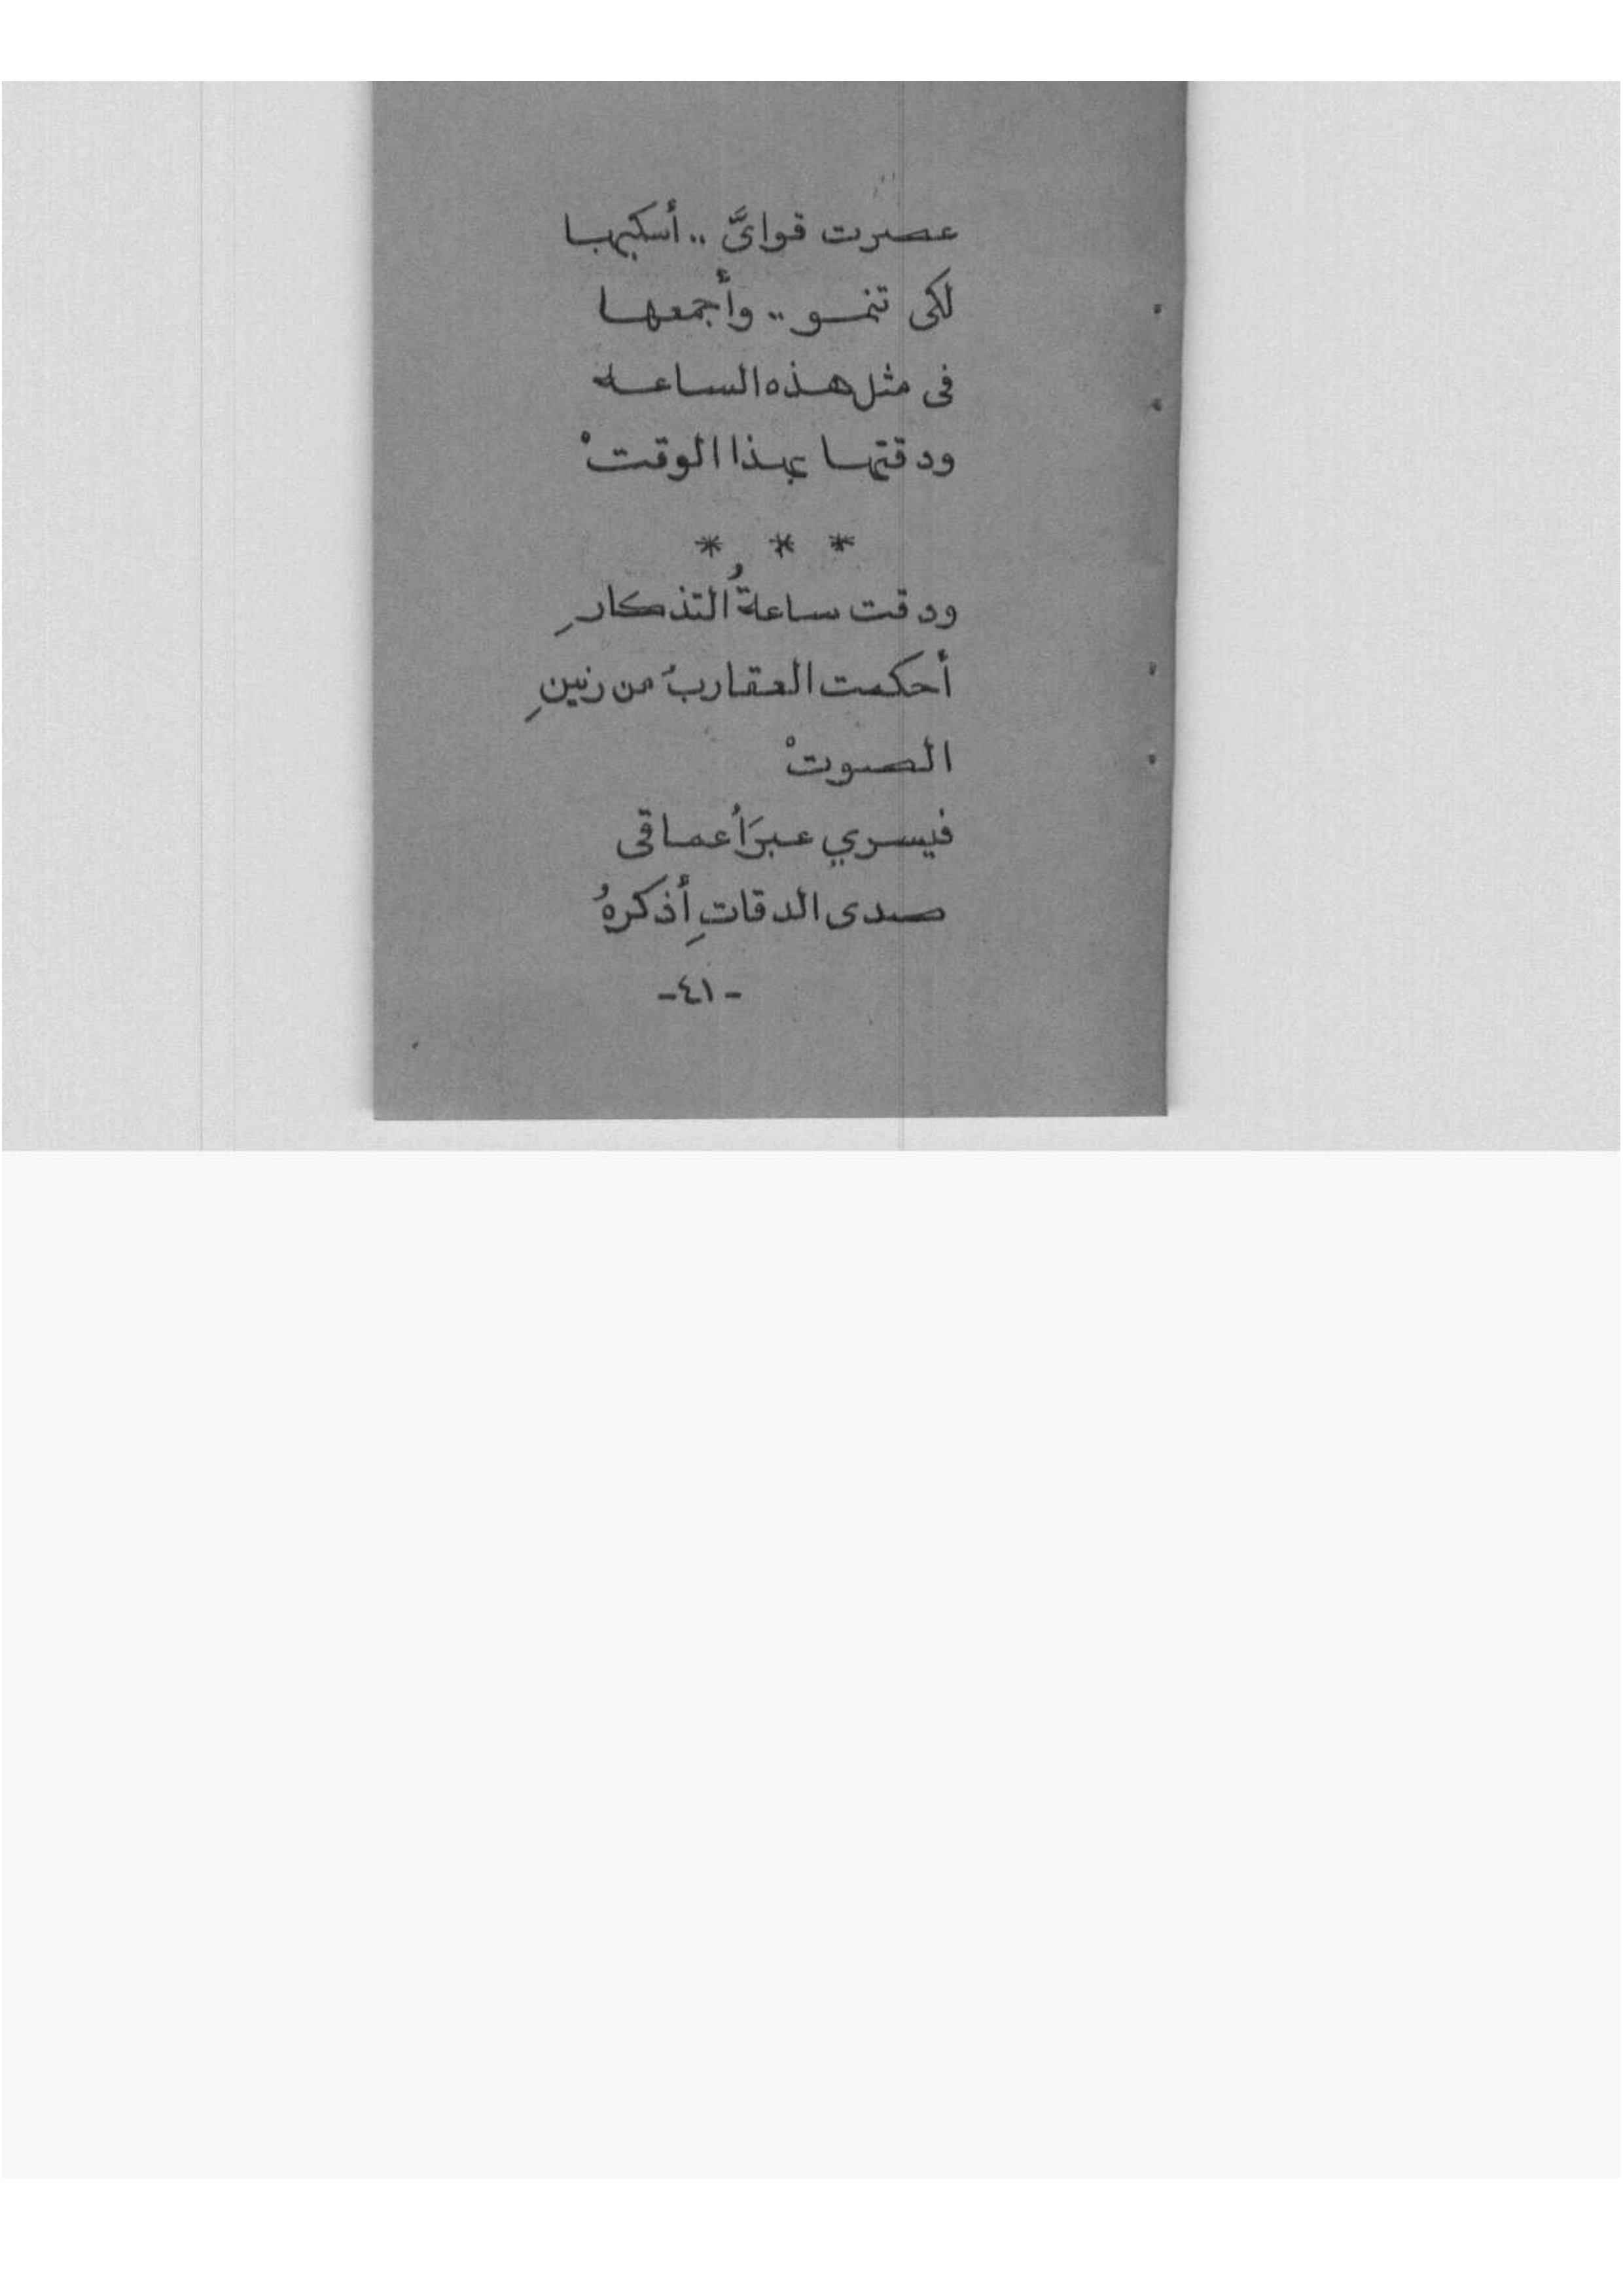 عصرت قوايَّ .. أسكبها
لكى تنمــو .. وأجمعهــا
فى مثل هــذه الساعــه
ودقتهــا بهــذا الوقتْ
* * *
ودقت ساعةُ التذكارِ
أحكمت العقاربُ من رنينِ
الصوتْ
فيسري عبرَ أعماقى
صدى الدقاتِ أذكرهُ
-٤١-